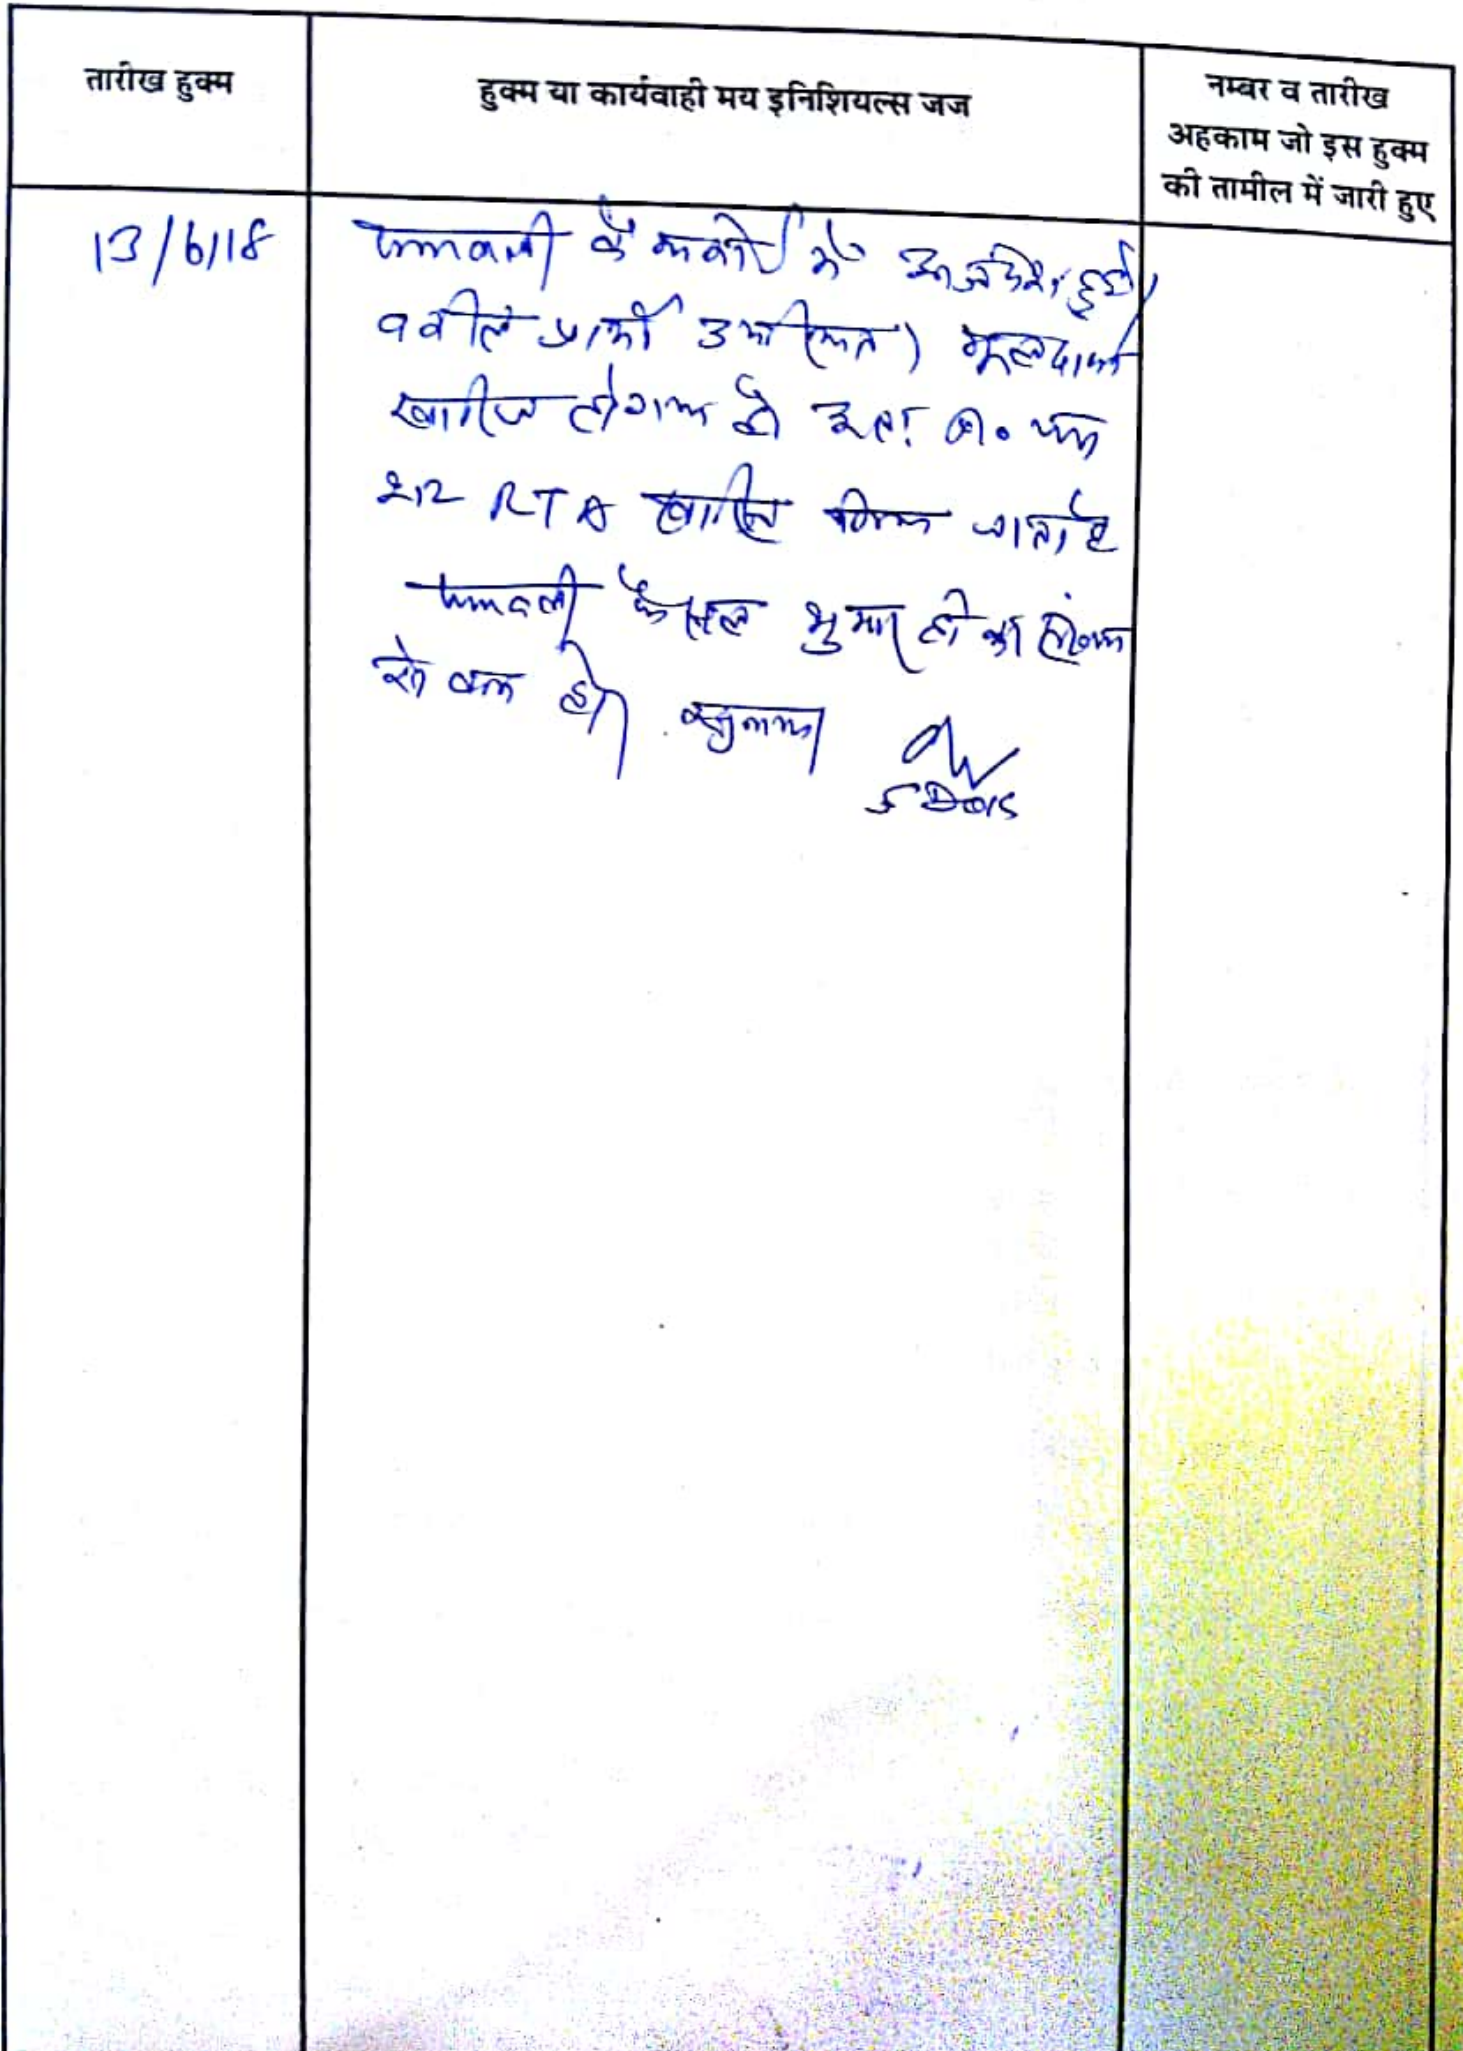 तारीख हुक्म
हुक्म या कार्यवाही मय इनिशियल्स जज
नम्बर व तारीख
अहकाम जो इस हुक्म
की तामील में जारी हुए
13/6/18
पत्रावली कैम्प कोर्ट में आज पेश हुई।
वकील प्रार्थी उपस्थित। मूलदावा
खारीज हो गया है अतः प्रा० पत्र
212 RTA खारिज किया जाता है
पत्रावली फैसल शुमार हो कर
से कम हो।